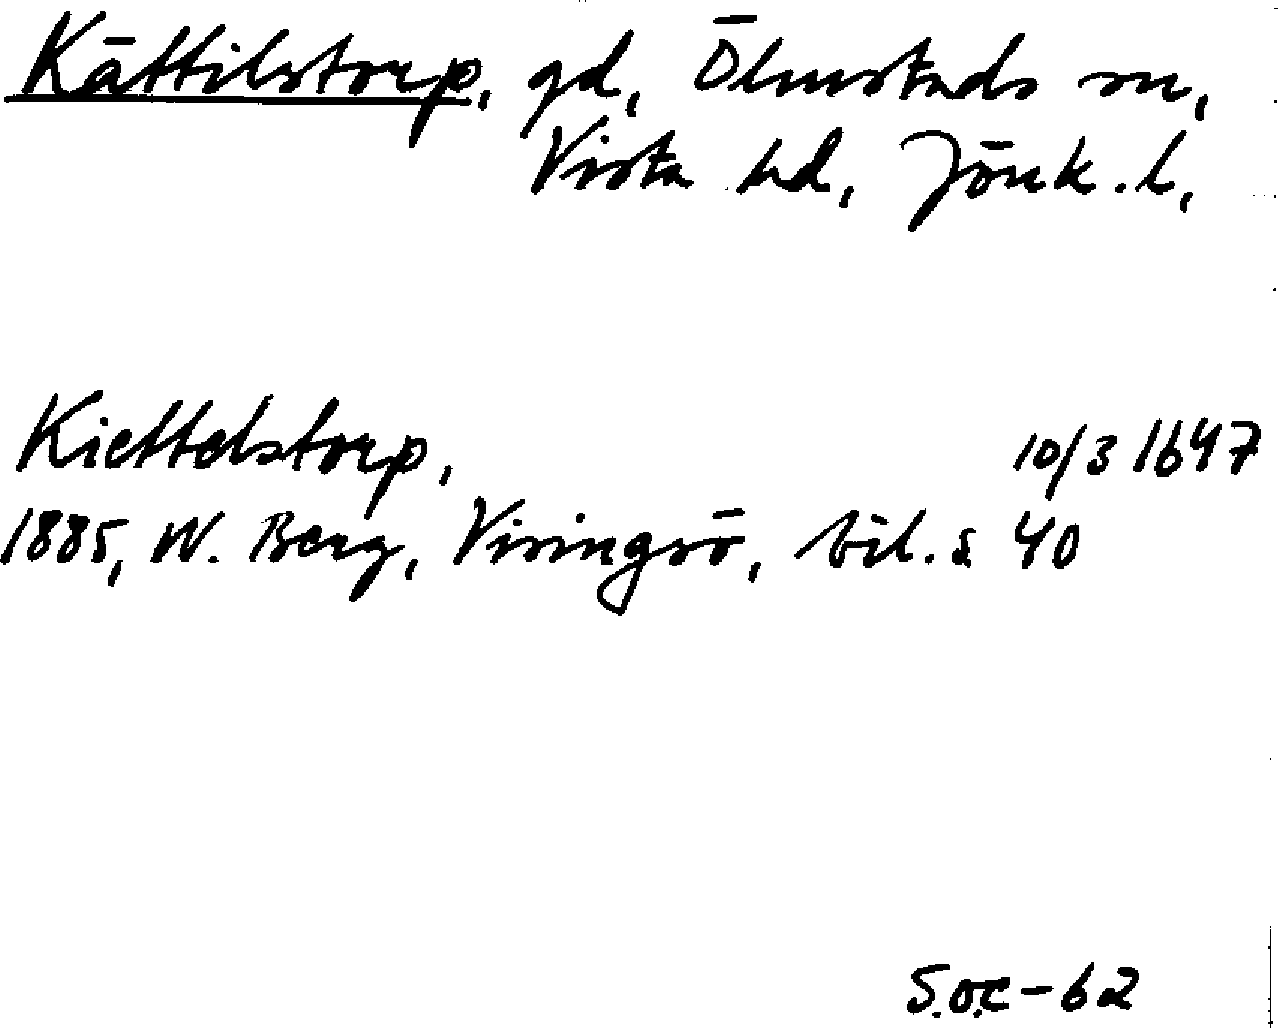 Kättilstorp, gd, Ölmstads sn,
Vista hd, Jönk. l,
Kiettelstorp, 10/3 1647
1885, W. Berg, Visingsö, bil. s 40
S.O.C-62